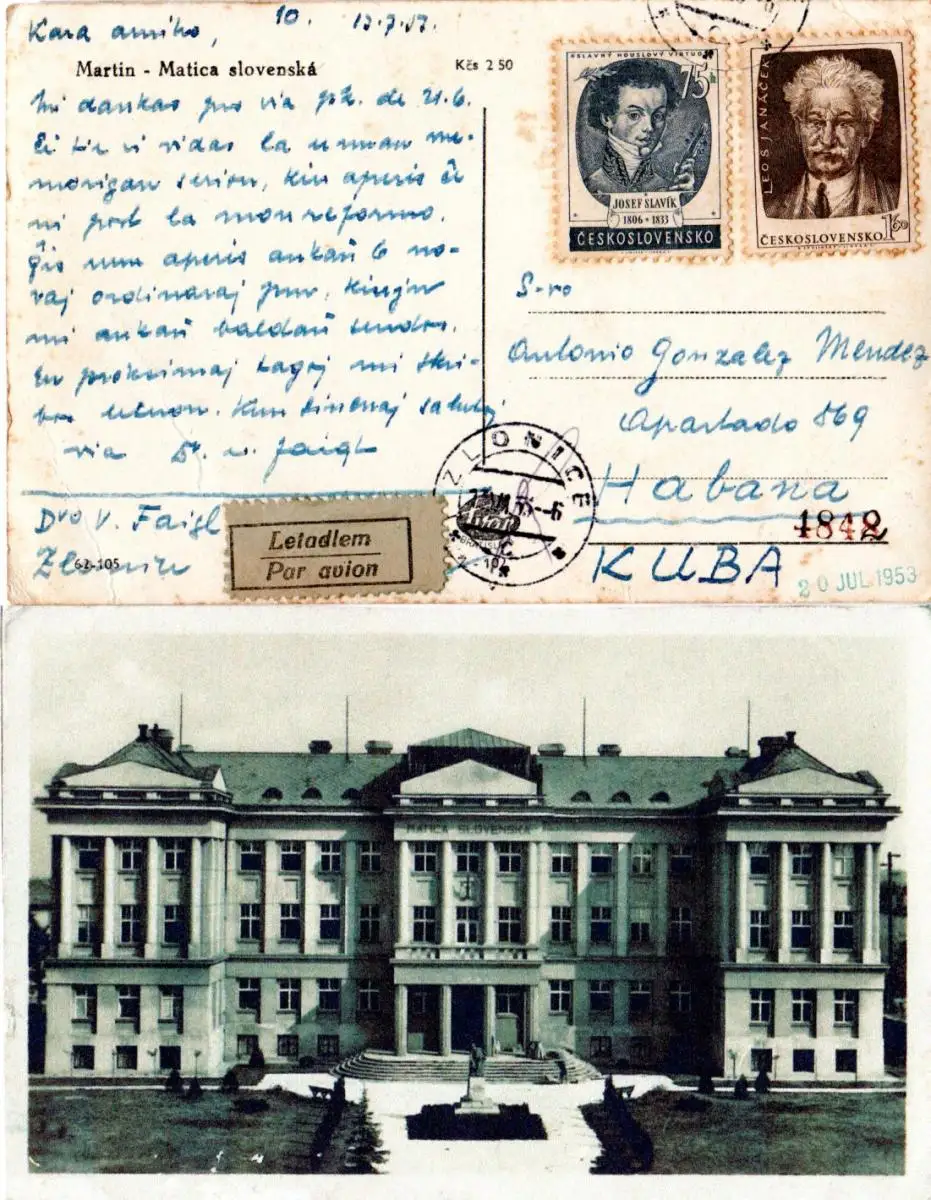 Kara amiko, 10. 13.7.53.
Martin - Matica slovenská
Kčs 2 50
Mi dankas pro via pk. de 21.6.
Ĉi tie vi vidas la unuan me-
morigan serion, kiu aperis ĉe
ni post la monreformo.
Ĝis nun aperis ankaŭ 6 no-
vaj ordinaraj pm, kiujn
mi ankaŭ baldaŭ sendos.
En proksimaj tagoj mi skri-
bos leteron. Kun sinceraj salutoj
via Dr. V. Faigl
Dro V. Faigl
Zlonice
62-105
Letadlem
Par avion
SLAVNÝ HOUSLOVÝ VIRTUOS
75h
JOSEF SLAVÍK
1806 * 1833
ČESKOSLOVENSKO
LEOŠ JANÁČEK
ČESKOSLOVENSKO 1.60
S-ro
Antonio Gonzalez Mendez
Apartado 569
Habana
KUBA
ZLONICE
4842
20 JUL 1953
MATICA SLOVENSKÁ